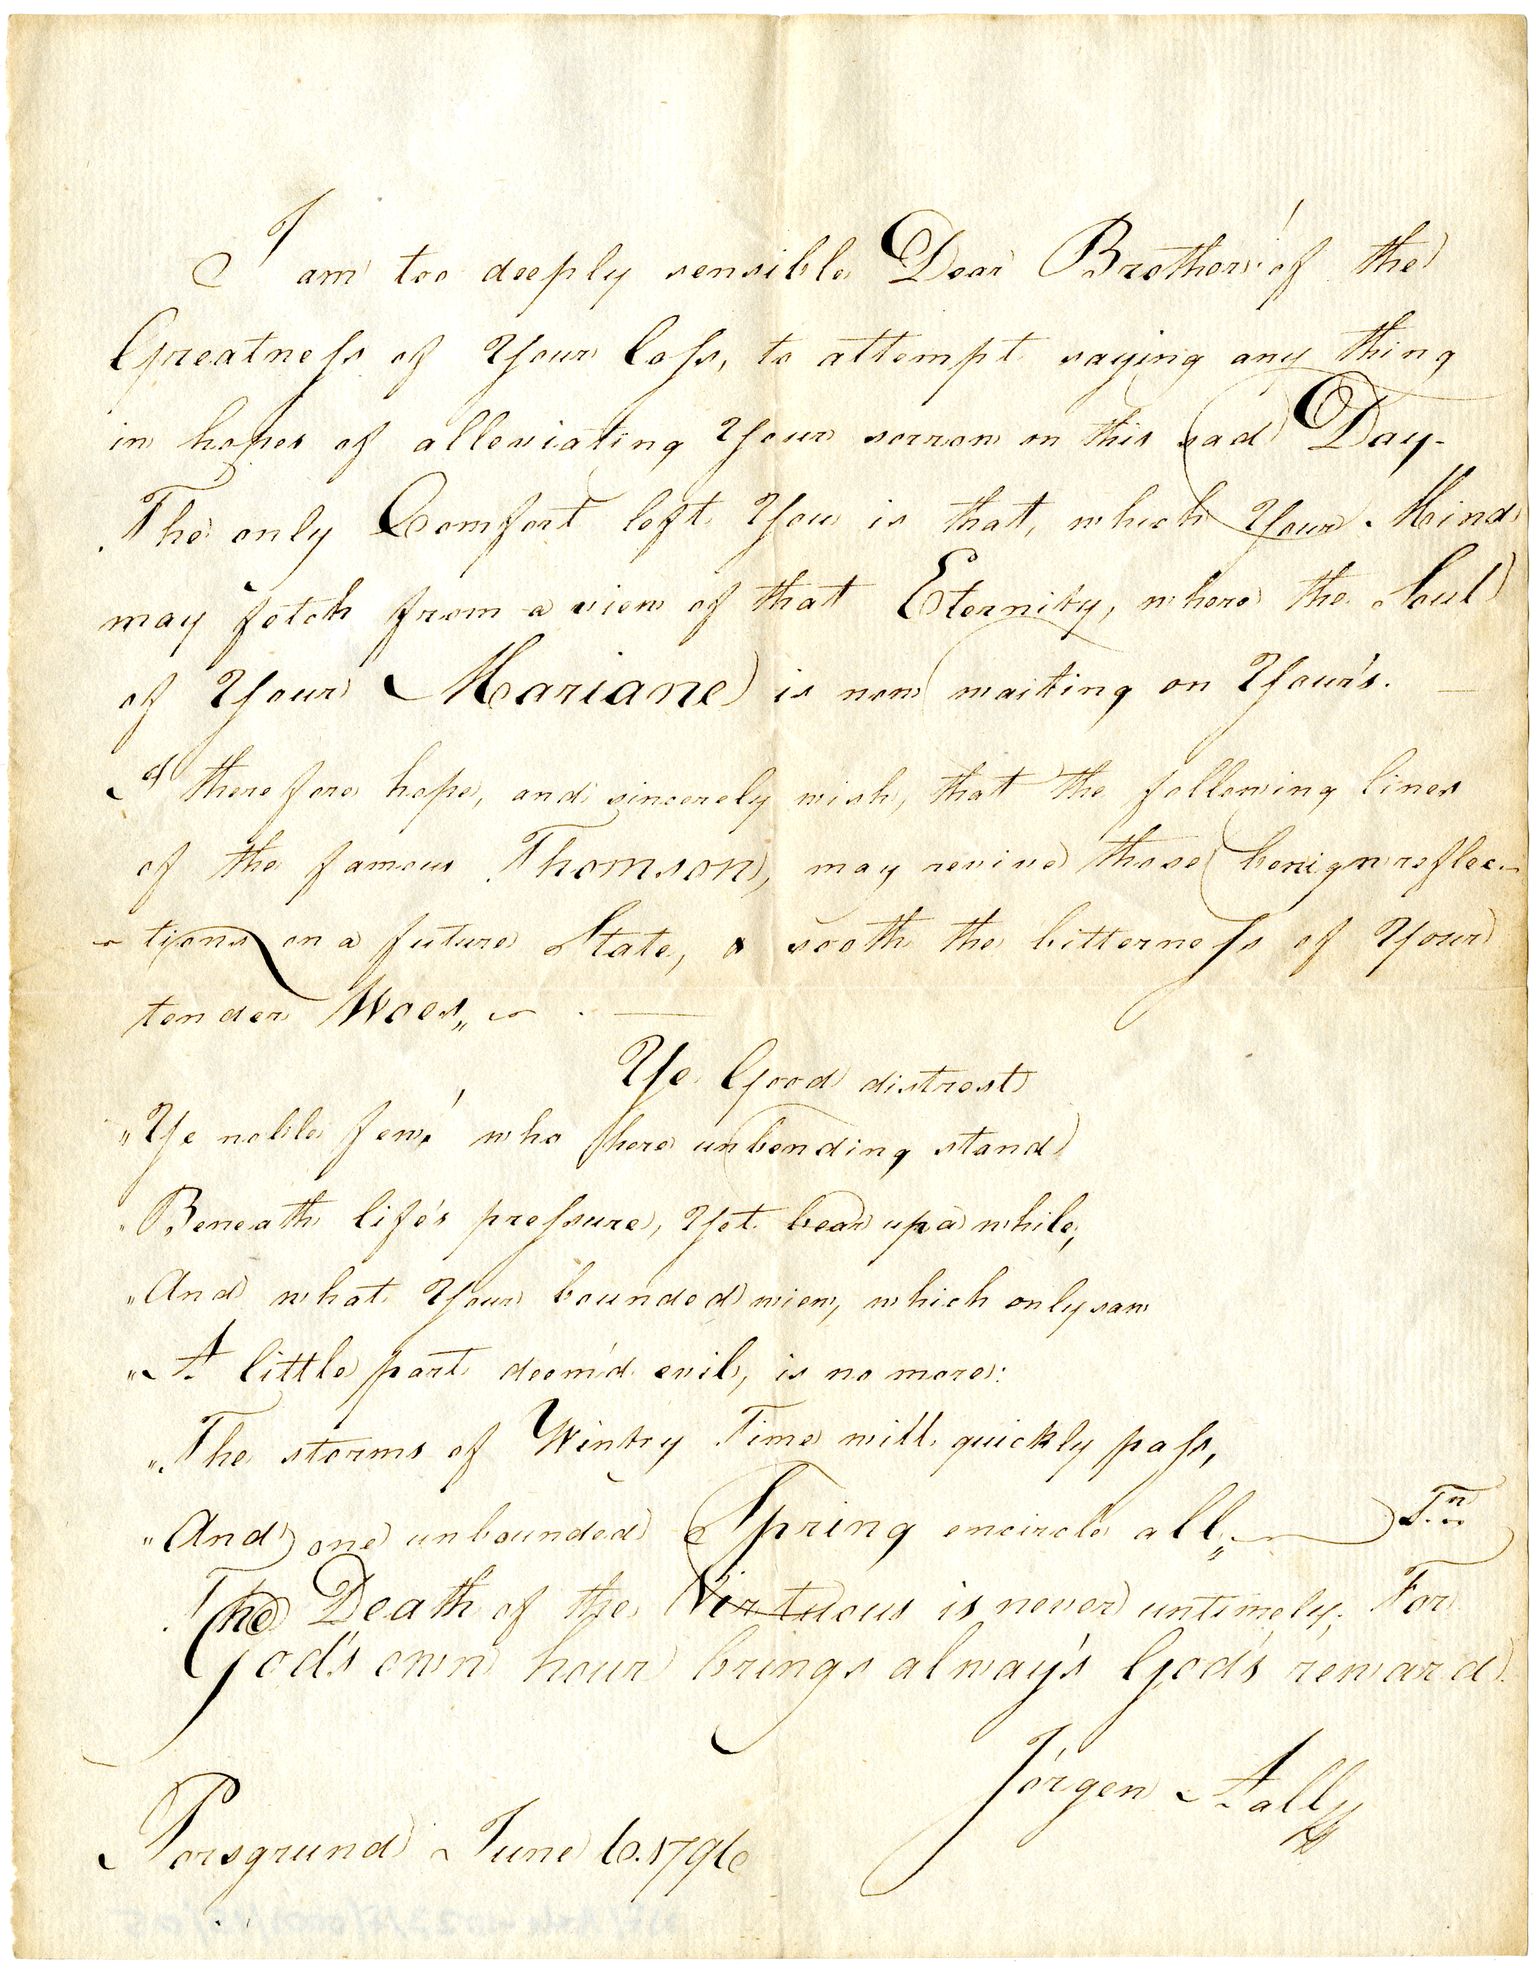 I am too deeply sensible Dear Brother! of the
Greatness of Your loss, to attempt saying any thing
in hopes of alleviating Your sorrow on this sad Day.
The only Comfort left You is that, which Your Mind
may fetch from a view of that Eternity, where the Soul
of Your Mariane is now waiting on Your's.
I therefore hope, and sincerely wish, that the following lines
of the famous Thomson, may revive those benign reflec-
-tions on a future State, & sooth the bitterness of Your
tender Woes„
Ye Good distrest
„Ye noble few! who here unbending stand
„Beneath life's pressure, Yet bear up a while,
„And what Your bounded view, which only saw
„A little part deem'd evil, is no more:
„The storms of Wintry Time will quickly pass,
„And one unbounded Spring encircle all„ Tn
The Death of the Virtuous is never untimely, For
God's own hour brings always God's reward.
Jörgen Aall
Porsgrund June 6. 1796